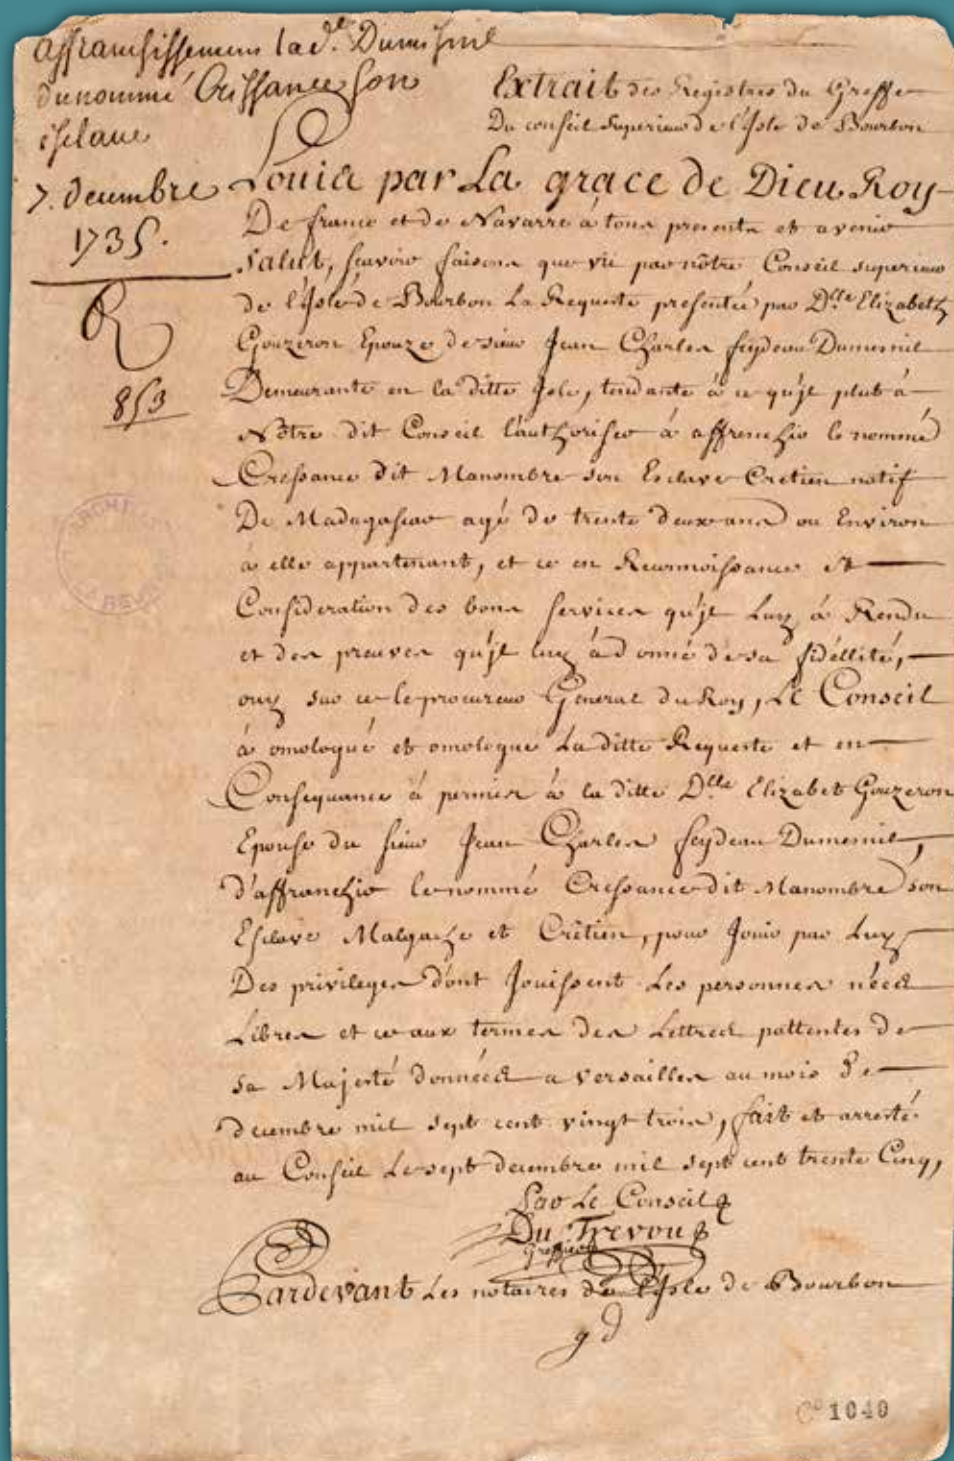 affranchissemens la d.e Dumesnil
du nommé Crissance son
esclave
7. decembre
1735.
R
853
Extrait des Registres du Greffe
Du conseil Superieur de l'Isle de Bourbon
Louis par La grace de Dieu Roy
De france et de Navarre à tous presents et avenir
Salut, sçavoir faisons que vû par nôtre Conseil superieur
de l'Isle de Bourbon La Requeste presentée par D.lle Elizabeth
Gouzeron Epouze de sieur Jean Charles feydeau Dumesnil
Demeurante en la ditte Isle, tendante à ce qu'jl plut à
Nôtre dit Conseil l'authoriser à affrenchir le nommé
Cressance dit Manombre son Esclave Cretien natif
De Madagascar agé de trente deux ans ou Environ
à elle appartenant, et ce en Reconnoissance et
Consideration des bons services qu'jl Luy à Rendu
et des preuves qu'jl luy à donné de sa fidéllité,
ouy sur ce le procureur General du Roy, Le Conseil
à omologué et omologue La ditte Requeste et en
Consequance à permis à la ditte D.lle Elizabet Gouzeron
Epouse du sieur Jean Charles feydeau Dumesnil,
d'affranchir le nommé Cressance dit Manombre son
Esclave Malgache et Crêtien, pour Jouir par Luy
Des privileges dont Jouissent Les personnes néés
Libres et ce aux termes des Lettres pattentes de
sa Majesté donnéés a versailles au mois De
decembre mil sept cent vingt trois, fait et arresté
au Conseil Le sept decembre mil sept cent trente Cinq,
Par Le Conseil
Du Trevou
Greffier
Pardevant Les notaires de l'Isle de Bourbon
gd
Co 1040